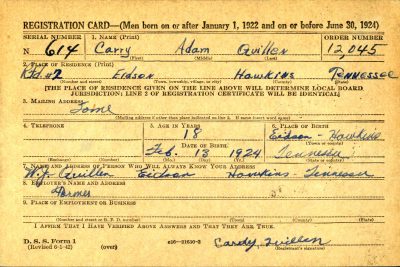 REGISTRATION CARD—(Men born on or after January 1, 1922 and on or before June 30, 1924)
SERIAL NUMBER 1. NAME (Print) ORDER NUMBER
N 614 Carry Adam Quillen 12,045
(First) (Middle) (Last)
2. PLACE OF RESIDENCE (Print)
R.d. #2 Eidson Hawkins Tennessee
(Number and street) (Town, township, village, or city) (County) (State)
[THE PLACE OF RESIDENCE GIVEN ON THE LINE ABOVE WILL DETERMINE LOCAL BOARD
JURISDICTION; LINE 2 OF REGISTRATION CERTIFICATE WILL BE IDENTICAL]
3. MAILING ADDRESS
Same
[Mailing address if other than place indicated on line 2. If same insert word same]
4. TELEPHONE 5. AGE IN YEARS 6. PLACE OF BIRTH
18 Eidson - Hawkins
DATE OF BIRTH (Town or county)
Feb. 13 1924 Tennessee
(Exchange) (Number) (Mo.) (Day) (Yr.) (State or country)
7. NAME AND ADDRESS OF PERSON WHO WILL ALWAYS KNOW YOUR ADDRESS
W. J. Quillen Eidson Hawkins - Tennessee
8. EMPLOYER'S NAME AND ADDRESS
Farmer
9. PLACE OF EMPLOYMENT OR BUSINESS
(Number and street or R. F. D. number) (Town) (County) (State)
I AFFIRM THAT I HAVE VERIFIED ABOVE ANSWERS AND THAT THEY ARE TRUE.
D. S. S. Form 1
(Revised 6-1-42) (over) c16—21630-2 Quillen
(Registrant's signature)